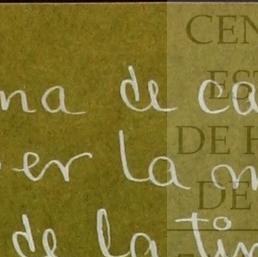 na de ca
er la m
de la tin
CEN
ES
DE H
DE